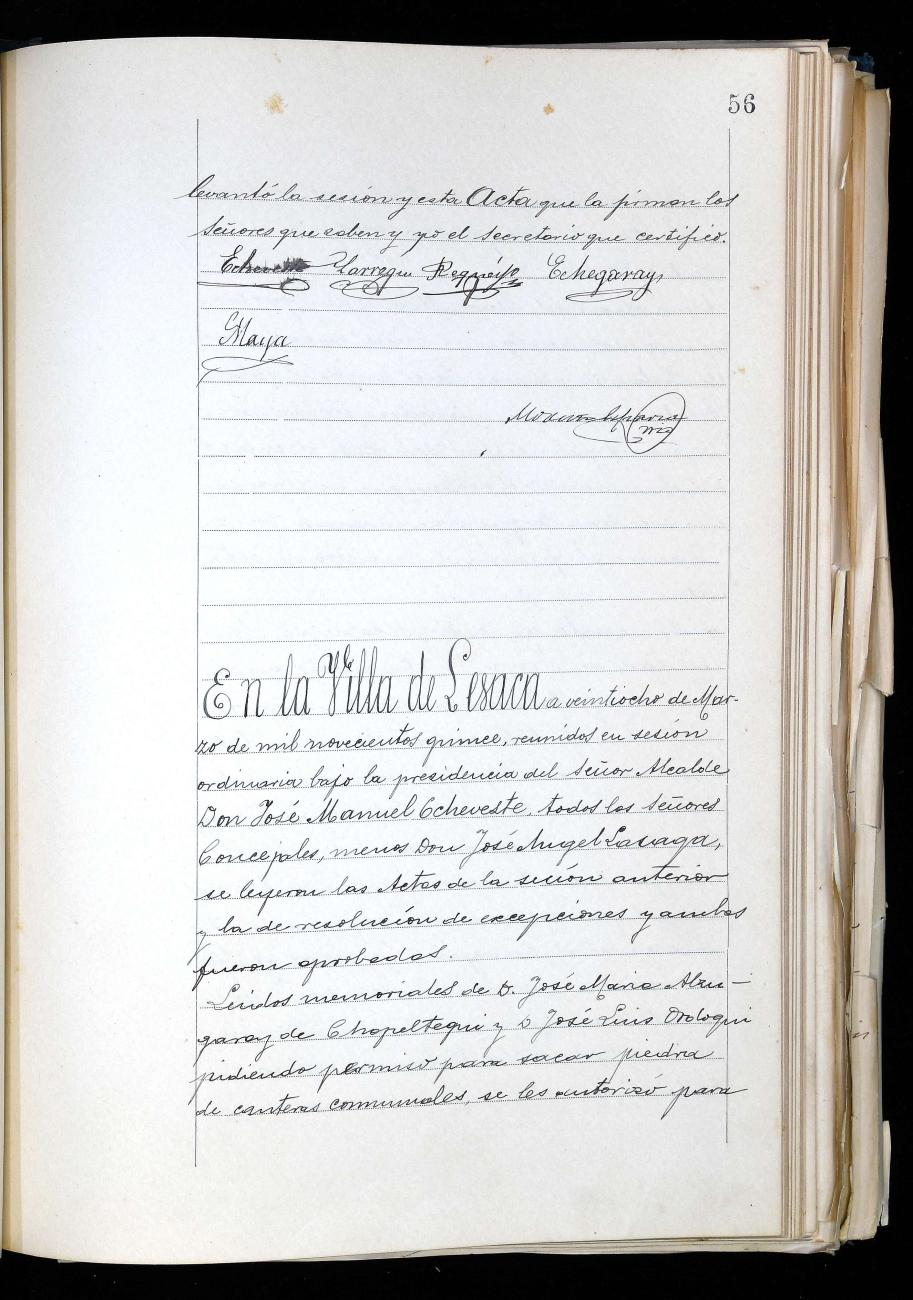 56
levantó la sesión y esta Acta que la firman los
Señores que saben y yo el secretario que certifico.
Echeveste Yarregui Echegaray
Maya
En la Villa de Lesaca a veintiocho de Mar-
zo de mil novecientos quince, reunidos en sesión
ordinaria bajo la presidencia del Señor Alcalde
Don José Manuel Echeveste, todos los Señores
Concejales, menos Don José Angel Lasaga,
se leyeron las Actas de la sesión anterior
y la de resolución de excepciones y ambas
fueron aprobadas.
Leidos memoriales de D. José Maria Alzu-
garay de Chapeltegui y D José Luis Ordoqui
pidiendo permiso para sacar piedra
de canteras comunales, se les autorizó para